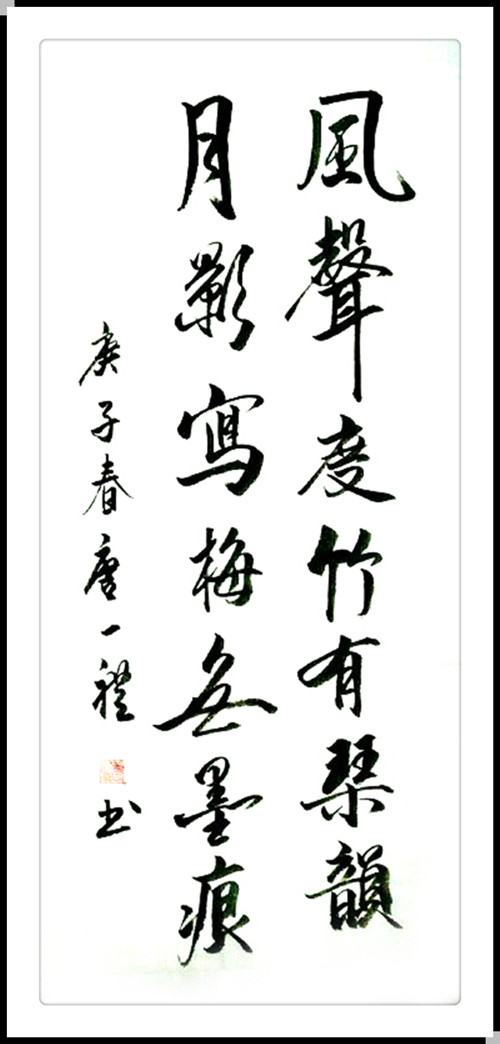 風聲度竹有琴韻
月影寫梅無墨痕
庚子春唐一禮
书